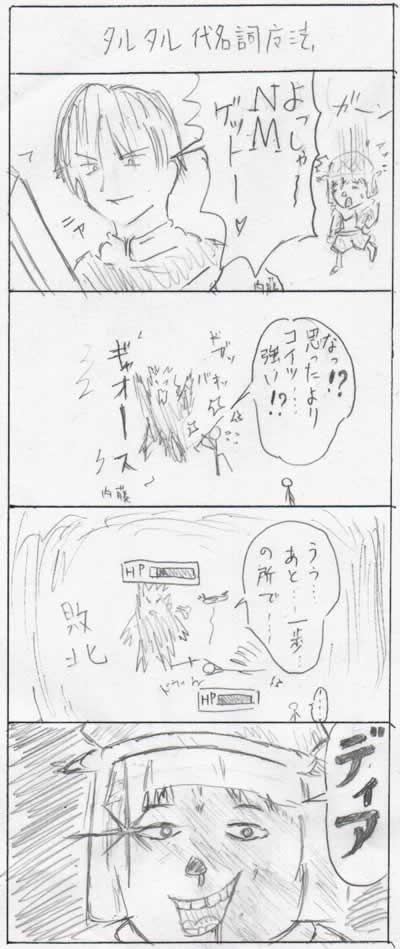 タルタル代名詞方法
ガーン
よっしゃ〜
NM
ゲットー♥
ニヤ
内藤
なっ!?
思ったより
コイツ…
強い!?
ドガッ
バキッ
ギャオース
内藤
うう…
あと…一歩…
の所で……
HP
敗北
HP
ディア